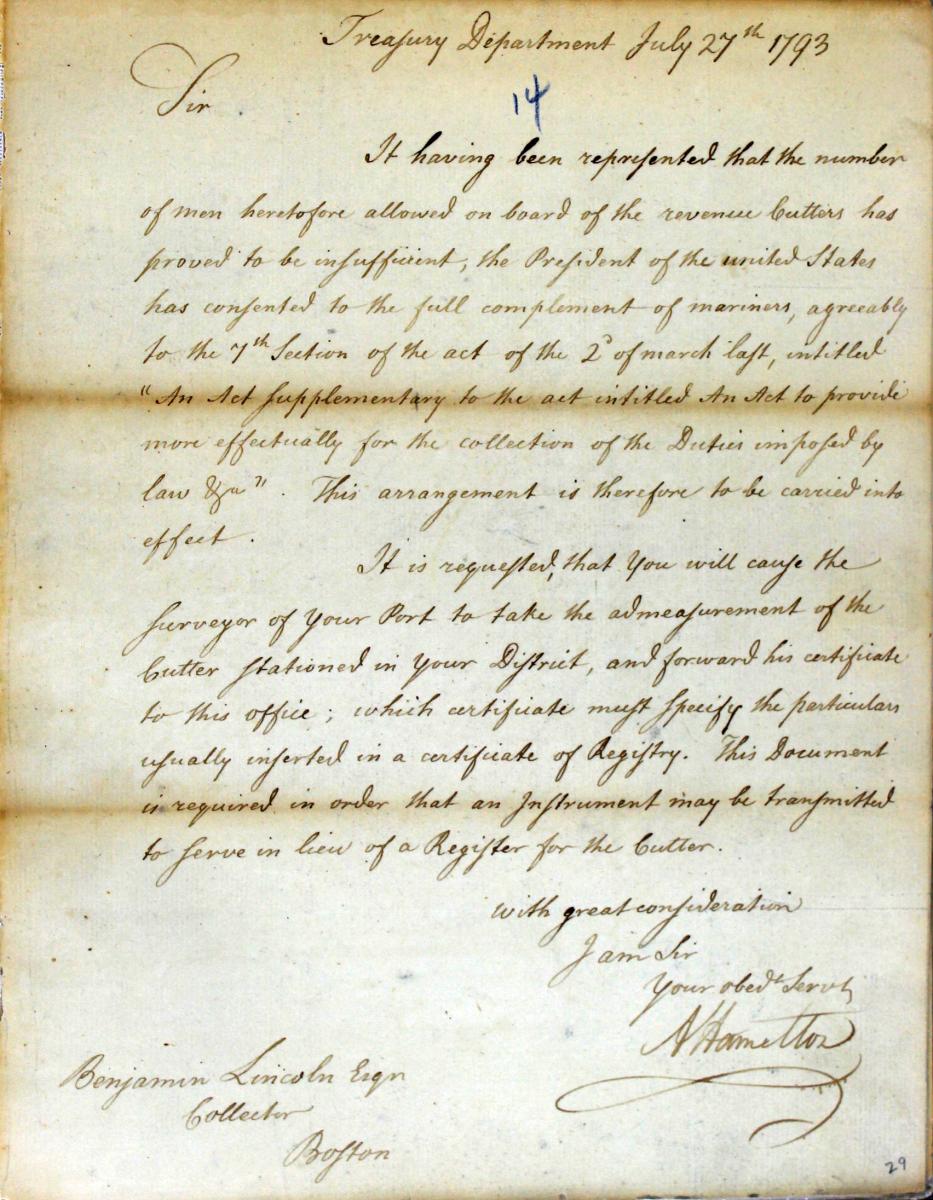 Treasury Department July 27th 1793
Sir
14
It having been represented that the number
of men heretofore allowed on board of the revenue Cutters has
proved to be insufficient, the President of the united States
has consented to the full complement of mariners, agreeably
to the 7th Section of the act of the 2d of march last, intitled
"An Act Supplementary to the act intitled An Act to provide
more effectually for the collection of the Duties imposed by
law &ca". This arrangement is therefore to be carried into
effect.
It is requested, that You will cause the
Surveyor of Your Port to take the admeasurement of the
Cutter stationed in Your District, and forward his certificate
to this office; which certificate must specify the particulars
usually inserted in a certificate of Registry. This Document
is required in order that an Instrument may be transmitted
to serve in lieu of a Register for the Cutter.
with great consideration
I am Sir
Your obedt Servt
A Hamilton
Benjamin Lincoln Esqr
Collector
Boston
29